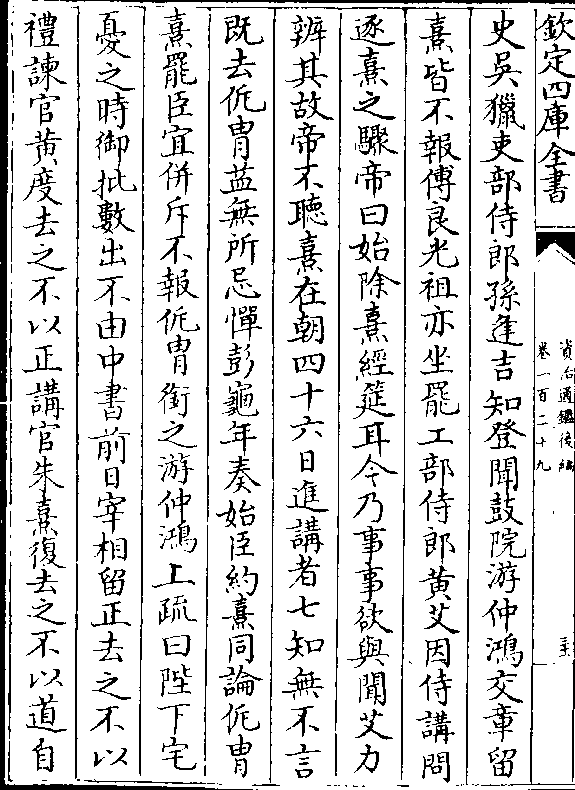 欽定四庫全書
資治通鑑後編
卷一百二十九
史吳獵吏部侍郎孫逢吉知登聞鼓院游仲鴻交章留
熹皆不報傅良光祖亦坐罷工部侍郎黃艾因侍講問
逐熹之驟帝曰始除熹經筵耳今乃事事欲與聞艾力
辨其故帝不聽熹在朝四十六日進講者七知無不言
既去侂胄益無所忌憚彭龜年奏始臣約熹同論侂胄
熹罷臣宜併斥不報侂胄銜之游仲鴻上疏曰陛下宅
憂之時御批數出不由中書前日宰相留正去之不以
禮諫官黃度去之不以正講官朱熹復去之不以道自